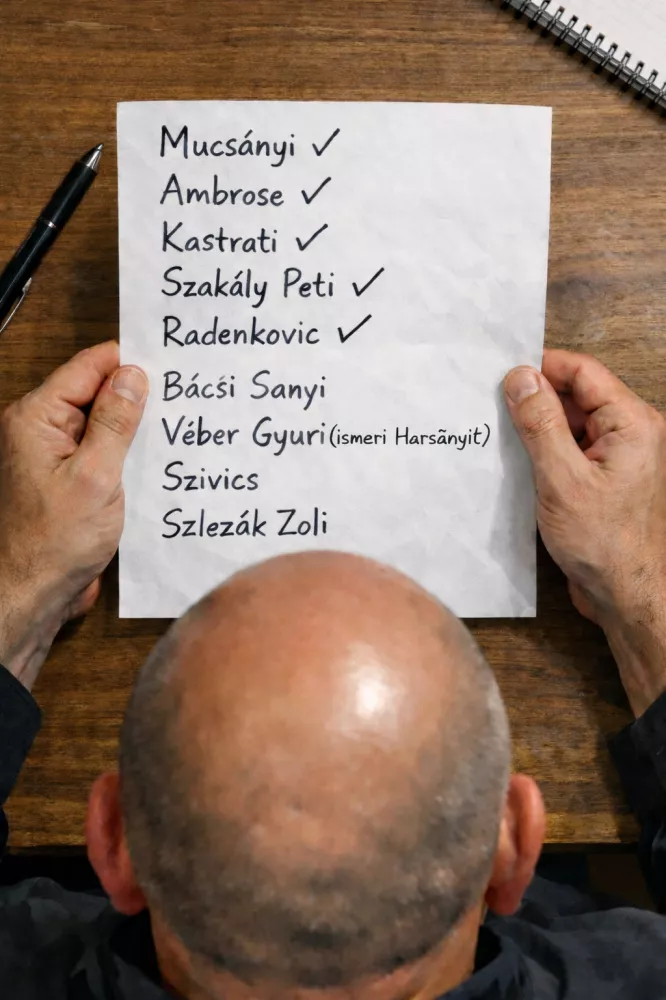 Mucsányi ✓
Ambrose ✓
Kastrati ✓
Szakály Peti ✓
Radenkovic ✓
Bácśi Sanyi
Véber Gyuri (ismeri Harsãnyit)
Szivics
Szlezák Zoli